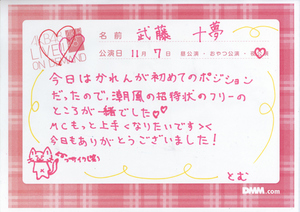 AKB48
VIDEO
ON DEMAND
名前 武藤 十夢
公演日 11月7日 昼公演・おやつ公演・夜公演
今日はかれんが初めてのポジション
だったので、潮風の招待状のフリーの
ところが一緒でした♡♡
MCもっと上手くなりたいです><
今日もありがとうございました!
とむ
DMM.com